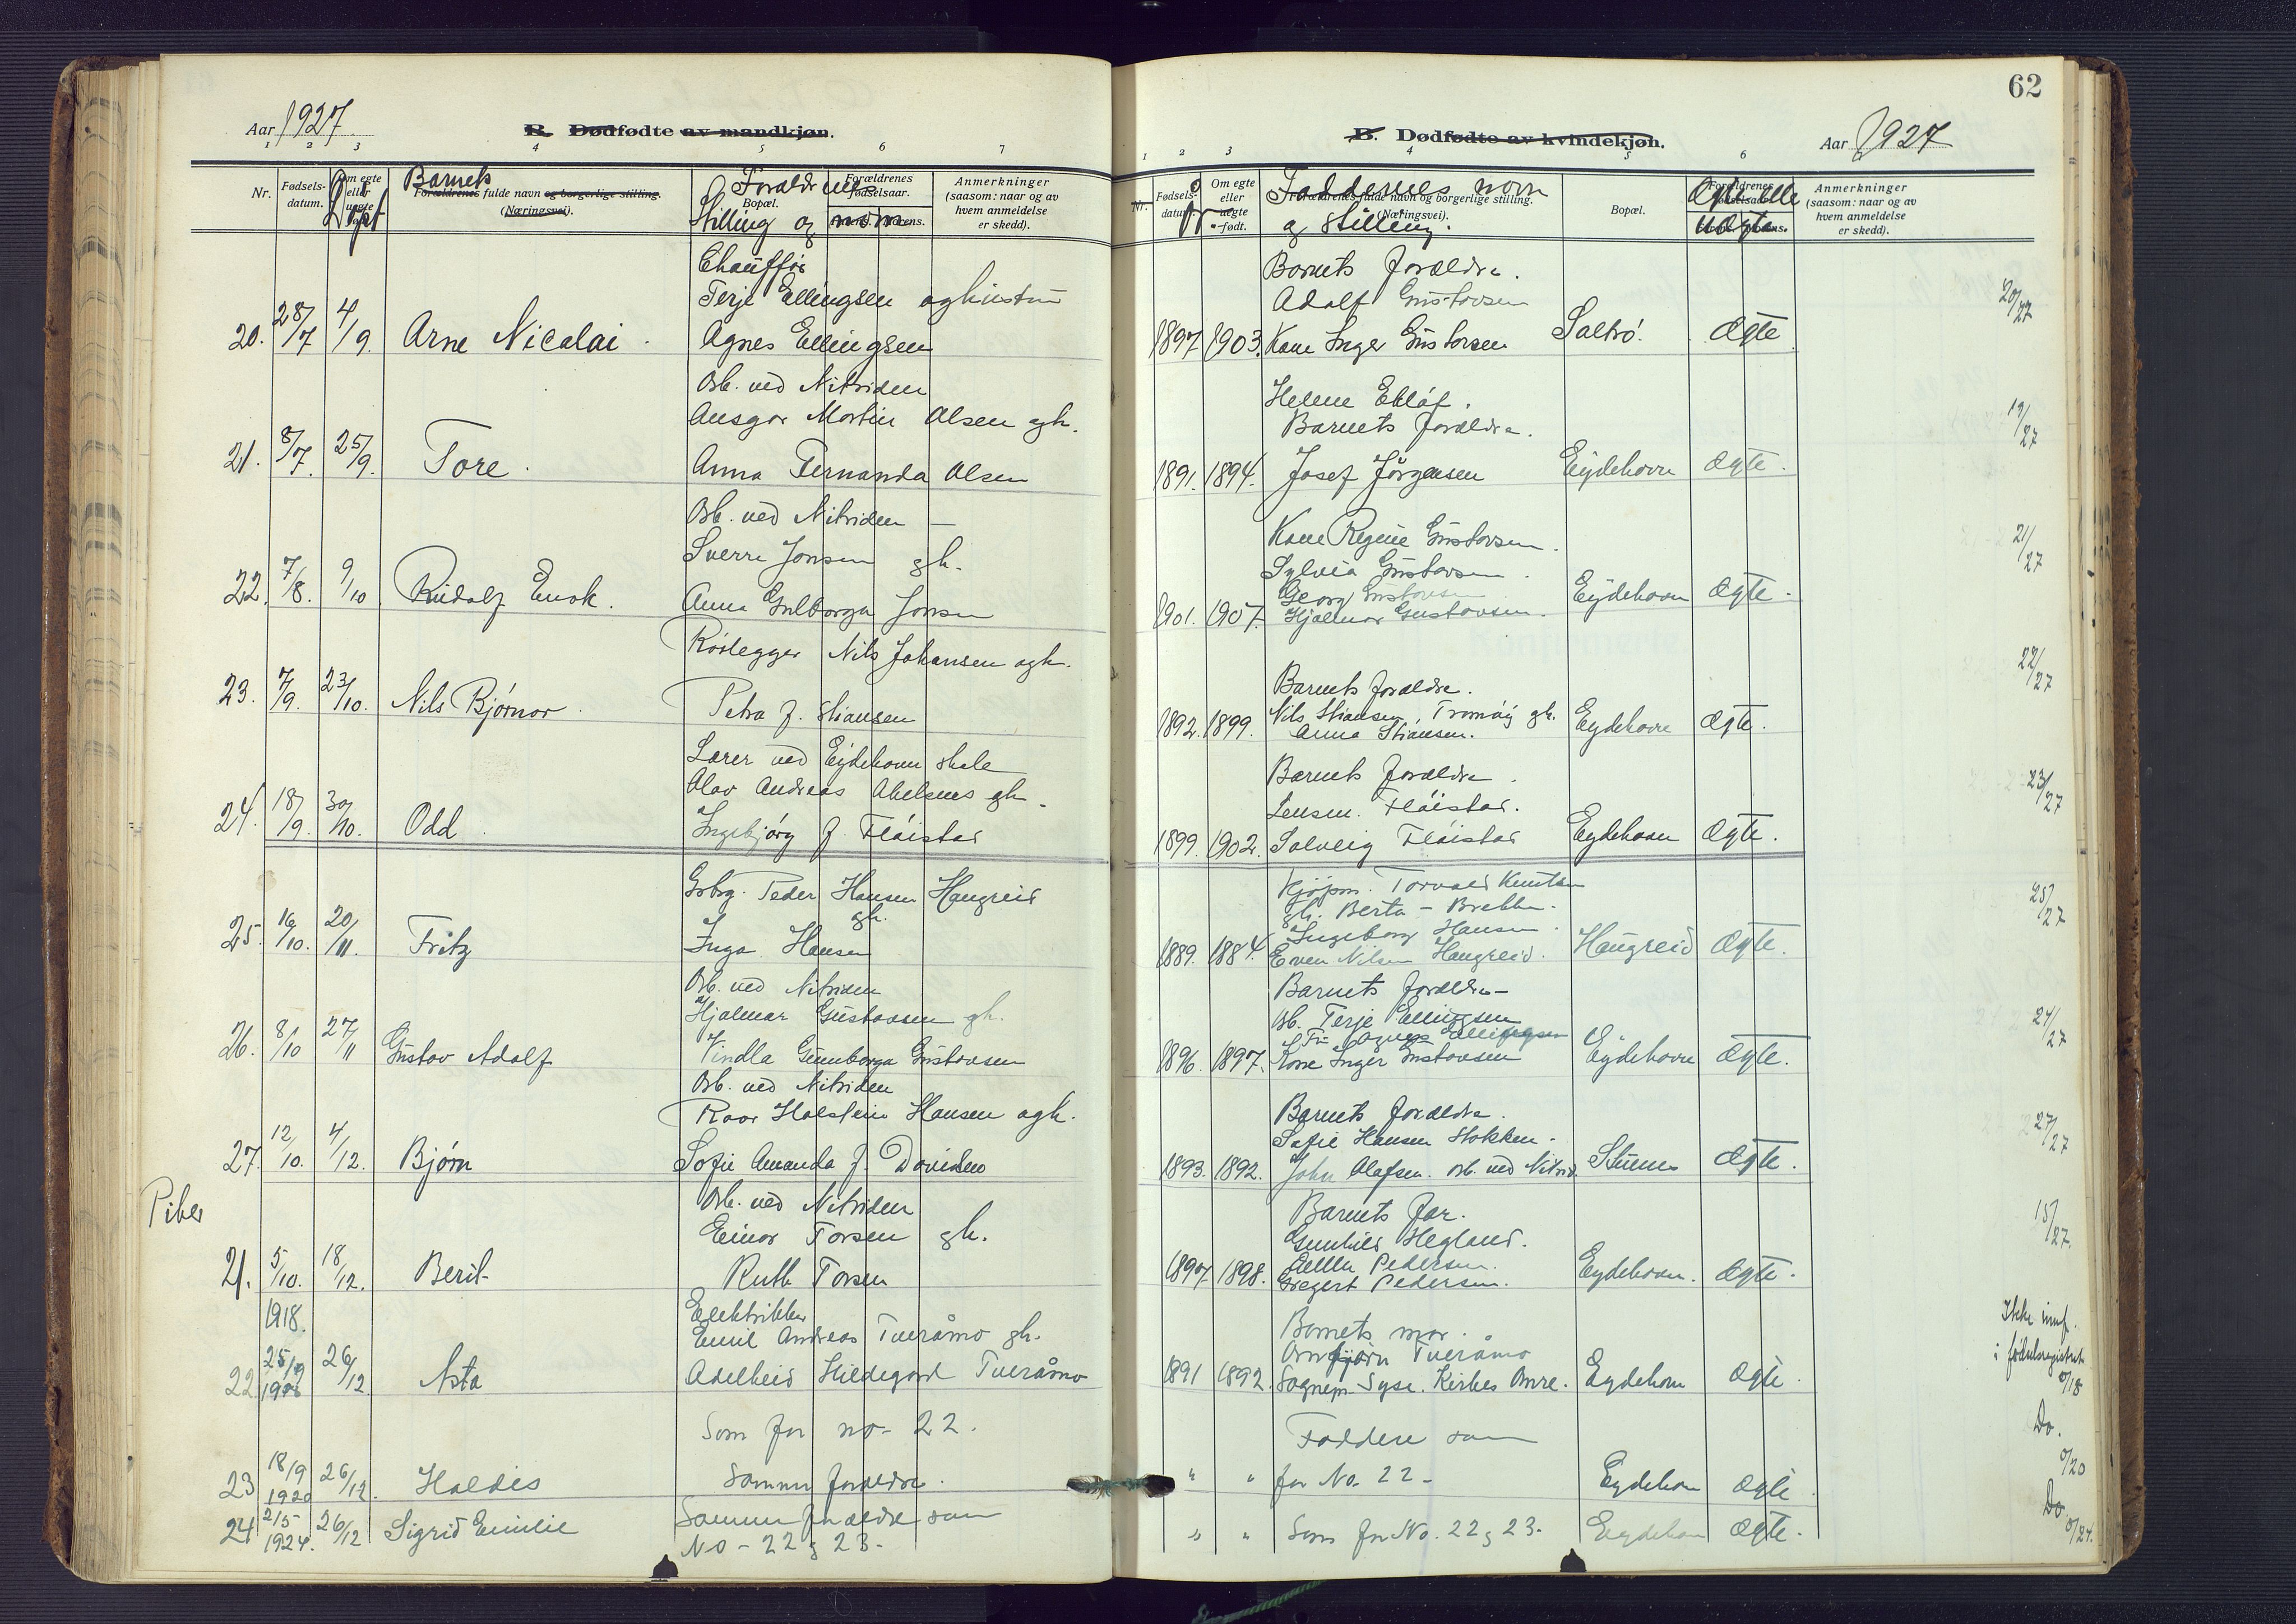 62
Aar 1927
B. Dødfødte av mandkjøn.
1 2 3 4 5 6 7
Nr.
Fødsels-
datum.
Om egte
eller
uegte
født.
Døpt
Barnets
Forældrenes fulde navn og borgerlige stilling.
(Næringsvei).
Forældrenes
Bopæl.
Stilling og navn
Forældrenes
fødselsaar.
Anmerkninger
(saasom: naar og av
hvem anmeldelse
er skedd).
Chauffør
Terje Ellingsen og hustru
20. 28/7 4/9. Arne Nicolai. Agnes Ellingsen
Arb. ved Nitriden
Ansgar Martin Olsen ogh.
21. 8/7. 25/9. Tore. Anna Fernanda Olsen
Arb. ved Nitriden —
Sverre Jonsen gh.
22. 7/8. 9/10. Rudolf Enok. Anna Gulborga Jonsen
Rørlegger Nils Johansen ogh.
23. 7/9. 23/10. Nils Bjørnar. Petra f. Stiansen
Lærer ved Eydehavn skole
Olav Andreas Abelsnes gh.
24. 18/9. 30/10. Odd Ingebjørg f. Fløistad
Grbr. Peder Hansen Haugreid
gh.
25. 16/10. 20/11. Fritz Inga Hansen
Arb. ved Nitriden
Hjalmar Gustavsen gh.
26. 8/10 27/11 Gustav Adolf Vindla Gunborga Gustavsen
Arb. ved Nitriden
Roar Holstein Hansen ogh.
27. 12/10. 4/12. Bjørn Sofie Amanda f. Davidsen
Piker
Arb. ved Nitriden
Einar Torsen gh.
21. 5/10. 18/12. Berit Ruth Torsen
1918.
Elektriker
Emil Andreas Tveråmo gh.
22 25/9 26/12 Asta Adelheid Hildegard Tveråmo
Som for no- 22.
23 18/9 1920 26/12. Haldis Samme forældre.
24 21/5 1924. 26/12 Sigrid Emilie Samme forældre som
No- 22 og 23-
B. Dødfødte av kvindekjøn.
Aar 1927
1 2 3 4 5 6
Nr.
Fødsels-
datum
Om egte
eller
uegte
født.
Faddernes navn
Forældrenes fulde navn og borgerlige stilling.
(Næringsvei).
og stilling.
Bopæl.
Forældrenes
fødselsaar.
Ægte eller
Uægte.
Anmerkninger
(saasom: naar og av
hvem anmeldelse
er skedd).
Barnets forældre.
Adolf Gustavsen
1897 1903. Kane Inger Gustavsen Saltrø. Ægte 20/27
Helene Ekløf.
Barnets forældre.
1891. 1894. Josef Jørgensen Eydehavn Ægte. 19/27
Kane Regine Gustavsen.
Sylvia Gustavsen.
Georg Gustavsen
1901. 1907. Hjalmar Gustavsen. Eydehavn Ægte. 21/27
Barnets forældre.
Nils Stiansen, Tromøy gh.
1892. 1899. Anna Stiansen. Eydehavn Ægte. 22/27
Barnets forældre.
Jensen. Fløistad.
1899. 1902. Solveig Fløistad Eydehavn Ægte. 23/27
Kjøpm. Torvald Knutsen
gh. Berta - Brekka.
Ingeborg Hansen.
1889. 1884. Even Nilsen Haugreid. Haugreid Ægte. 25/27
Barnets forældre-
Arb. Terje Ellingsen
Fru Agnes Ellingsen
1896. 1897. Kane Inger Gustavsen Eydehavn Ægte. 24/27
Barnets forældre.
Sofie Hansen Stokken.
1893. 1892. John Olafsen. arb. ved Nitrid. Stuenes Ægte. 27/27
Barnets far.
Gunhild Hegland.
Pedersen.
1897 1898. Gregert Pedersen. Eydehavn. Ægte. 15/27.
Barnets mor.
Arnbjørn Tveråmo
1891 1892. Sognepr. Syse. Kirkes Anre. Eydehavn Ægte.
Ikke innf.
i fødselsregistret
0/18
Faddere som
" " for No. 22- Eydehavn Ægte
Do.
0/20
" " Som for No. 22 og 23. Eydehavn Ægte.
Do.
0/24.